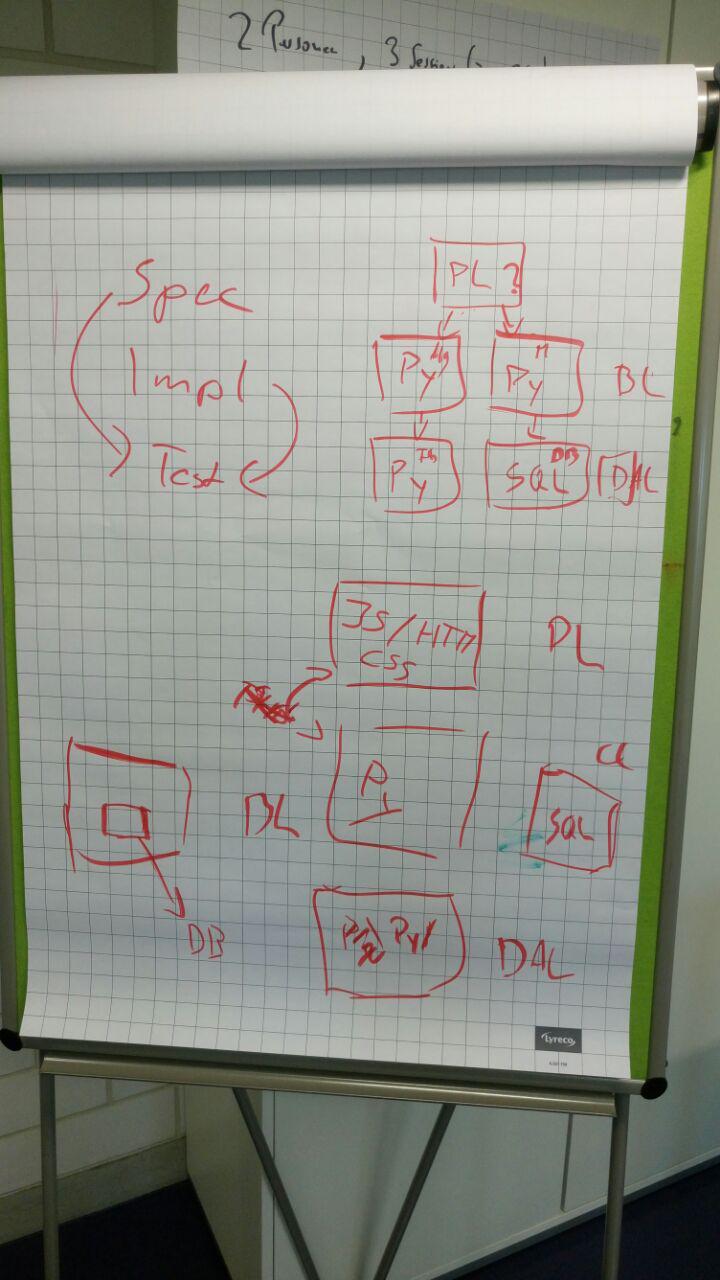 2 Personen, 3 Session
Spec
Impl
Test
PL ?
Py
Py M
BL
Py
SQL DB
DAL
JS/HTM
CSS
PL
BL
P
SQL
DB
Py
DAL
Lyreco